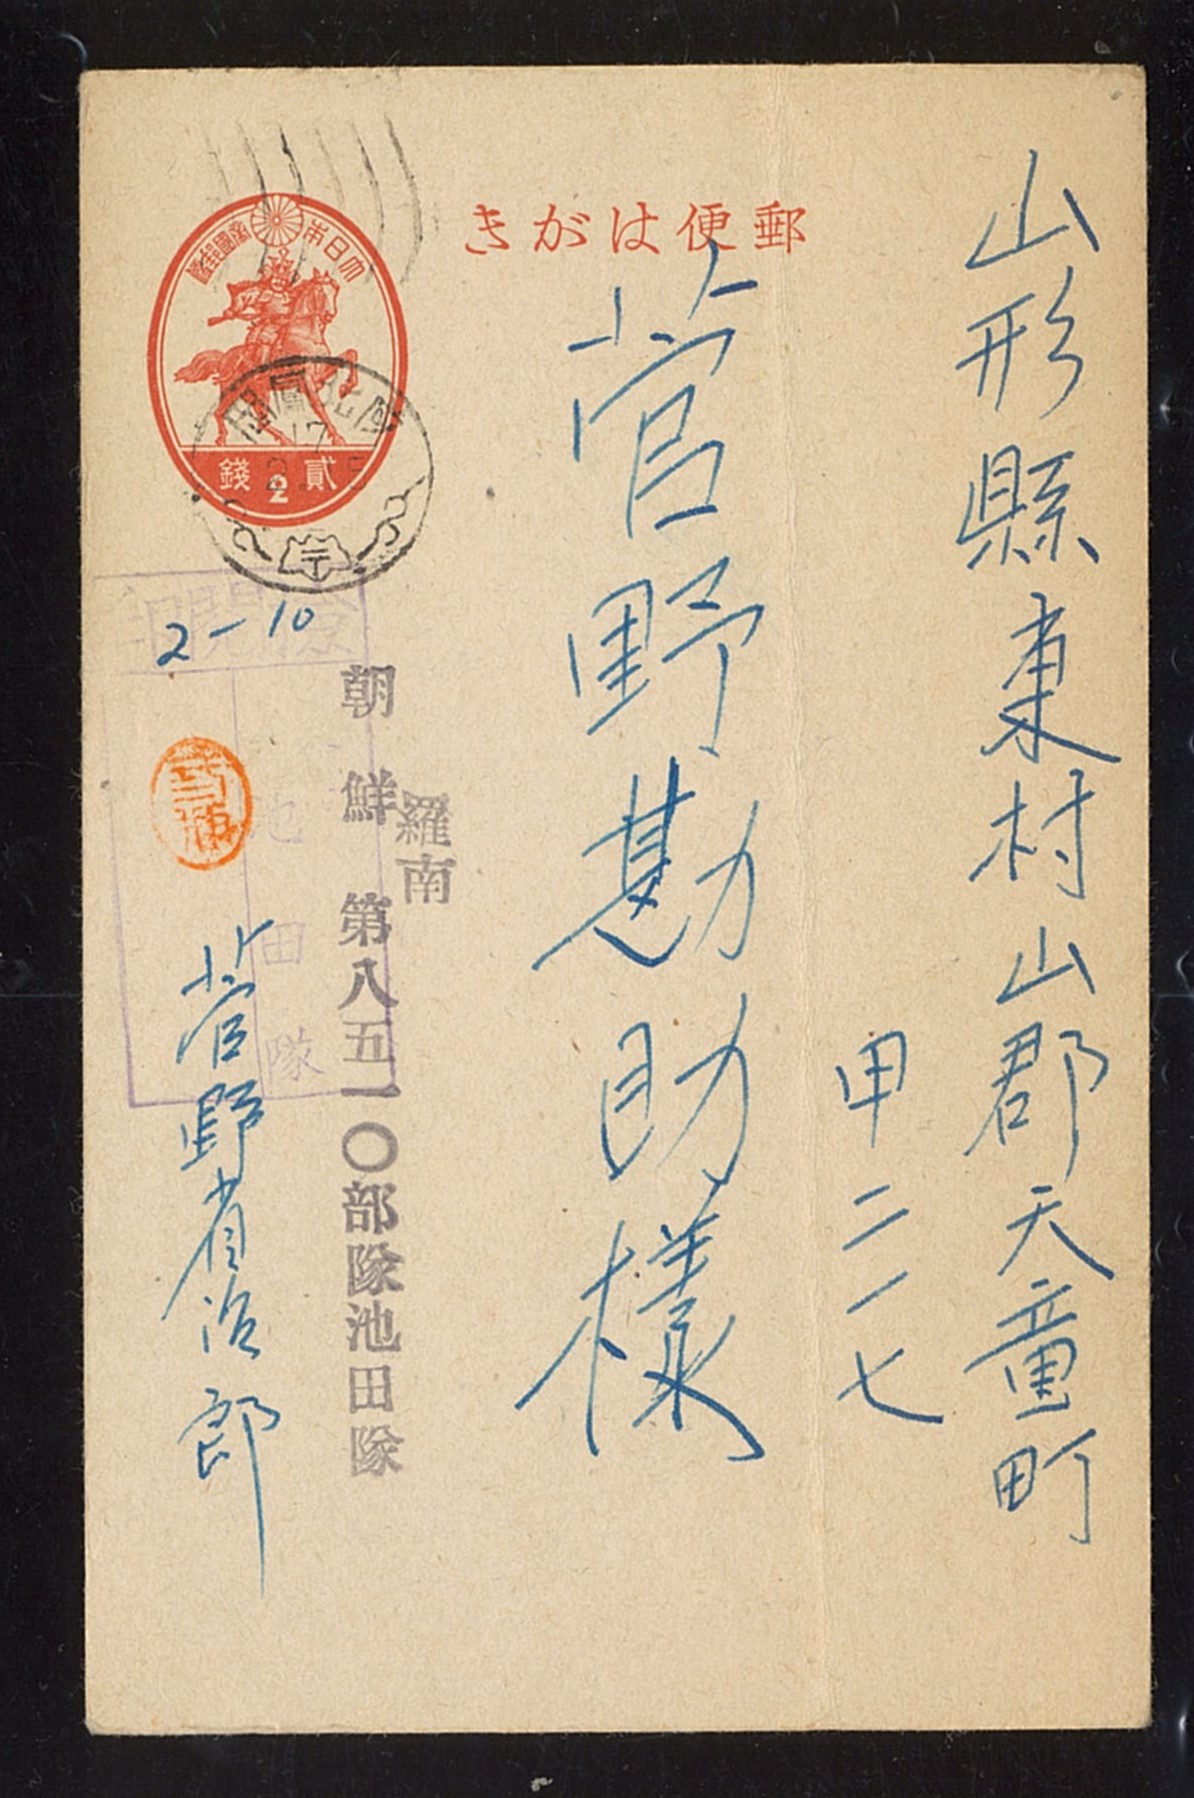 郵便はがき
大日本帝國郵便
貳錢
2
17
山形縣東村山郡天童町
甲二一七
菅野勘助様
羅南
朝鮮第八五一〇部隊池田隊
2-10
檢閲
池田隊
菅野省治郎